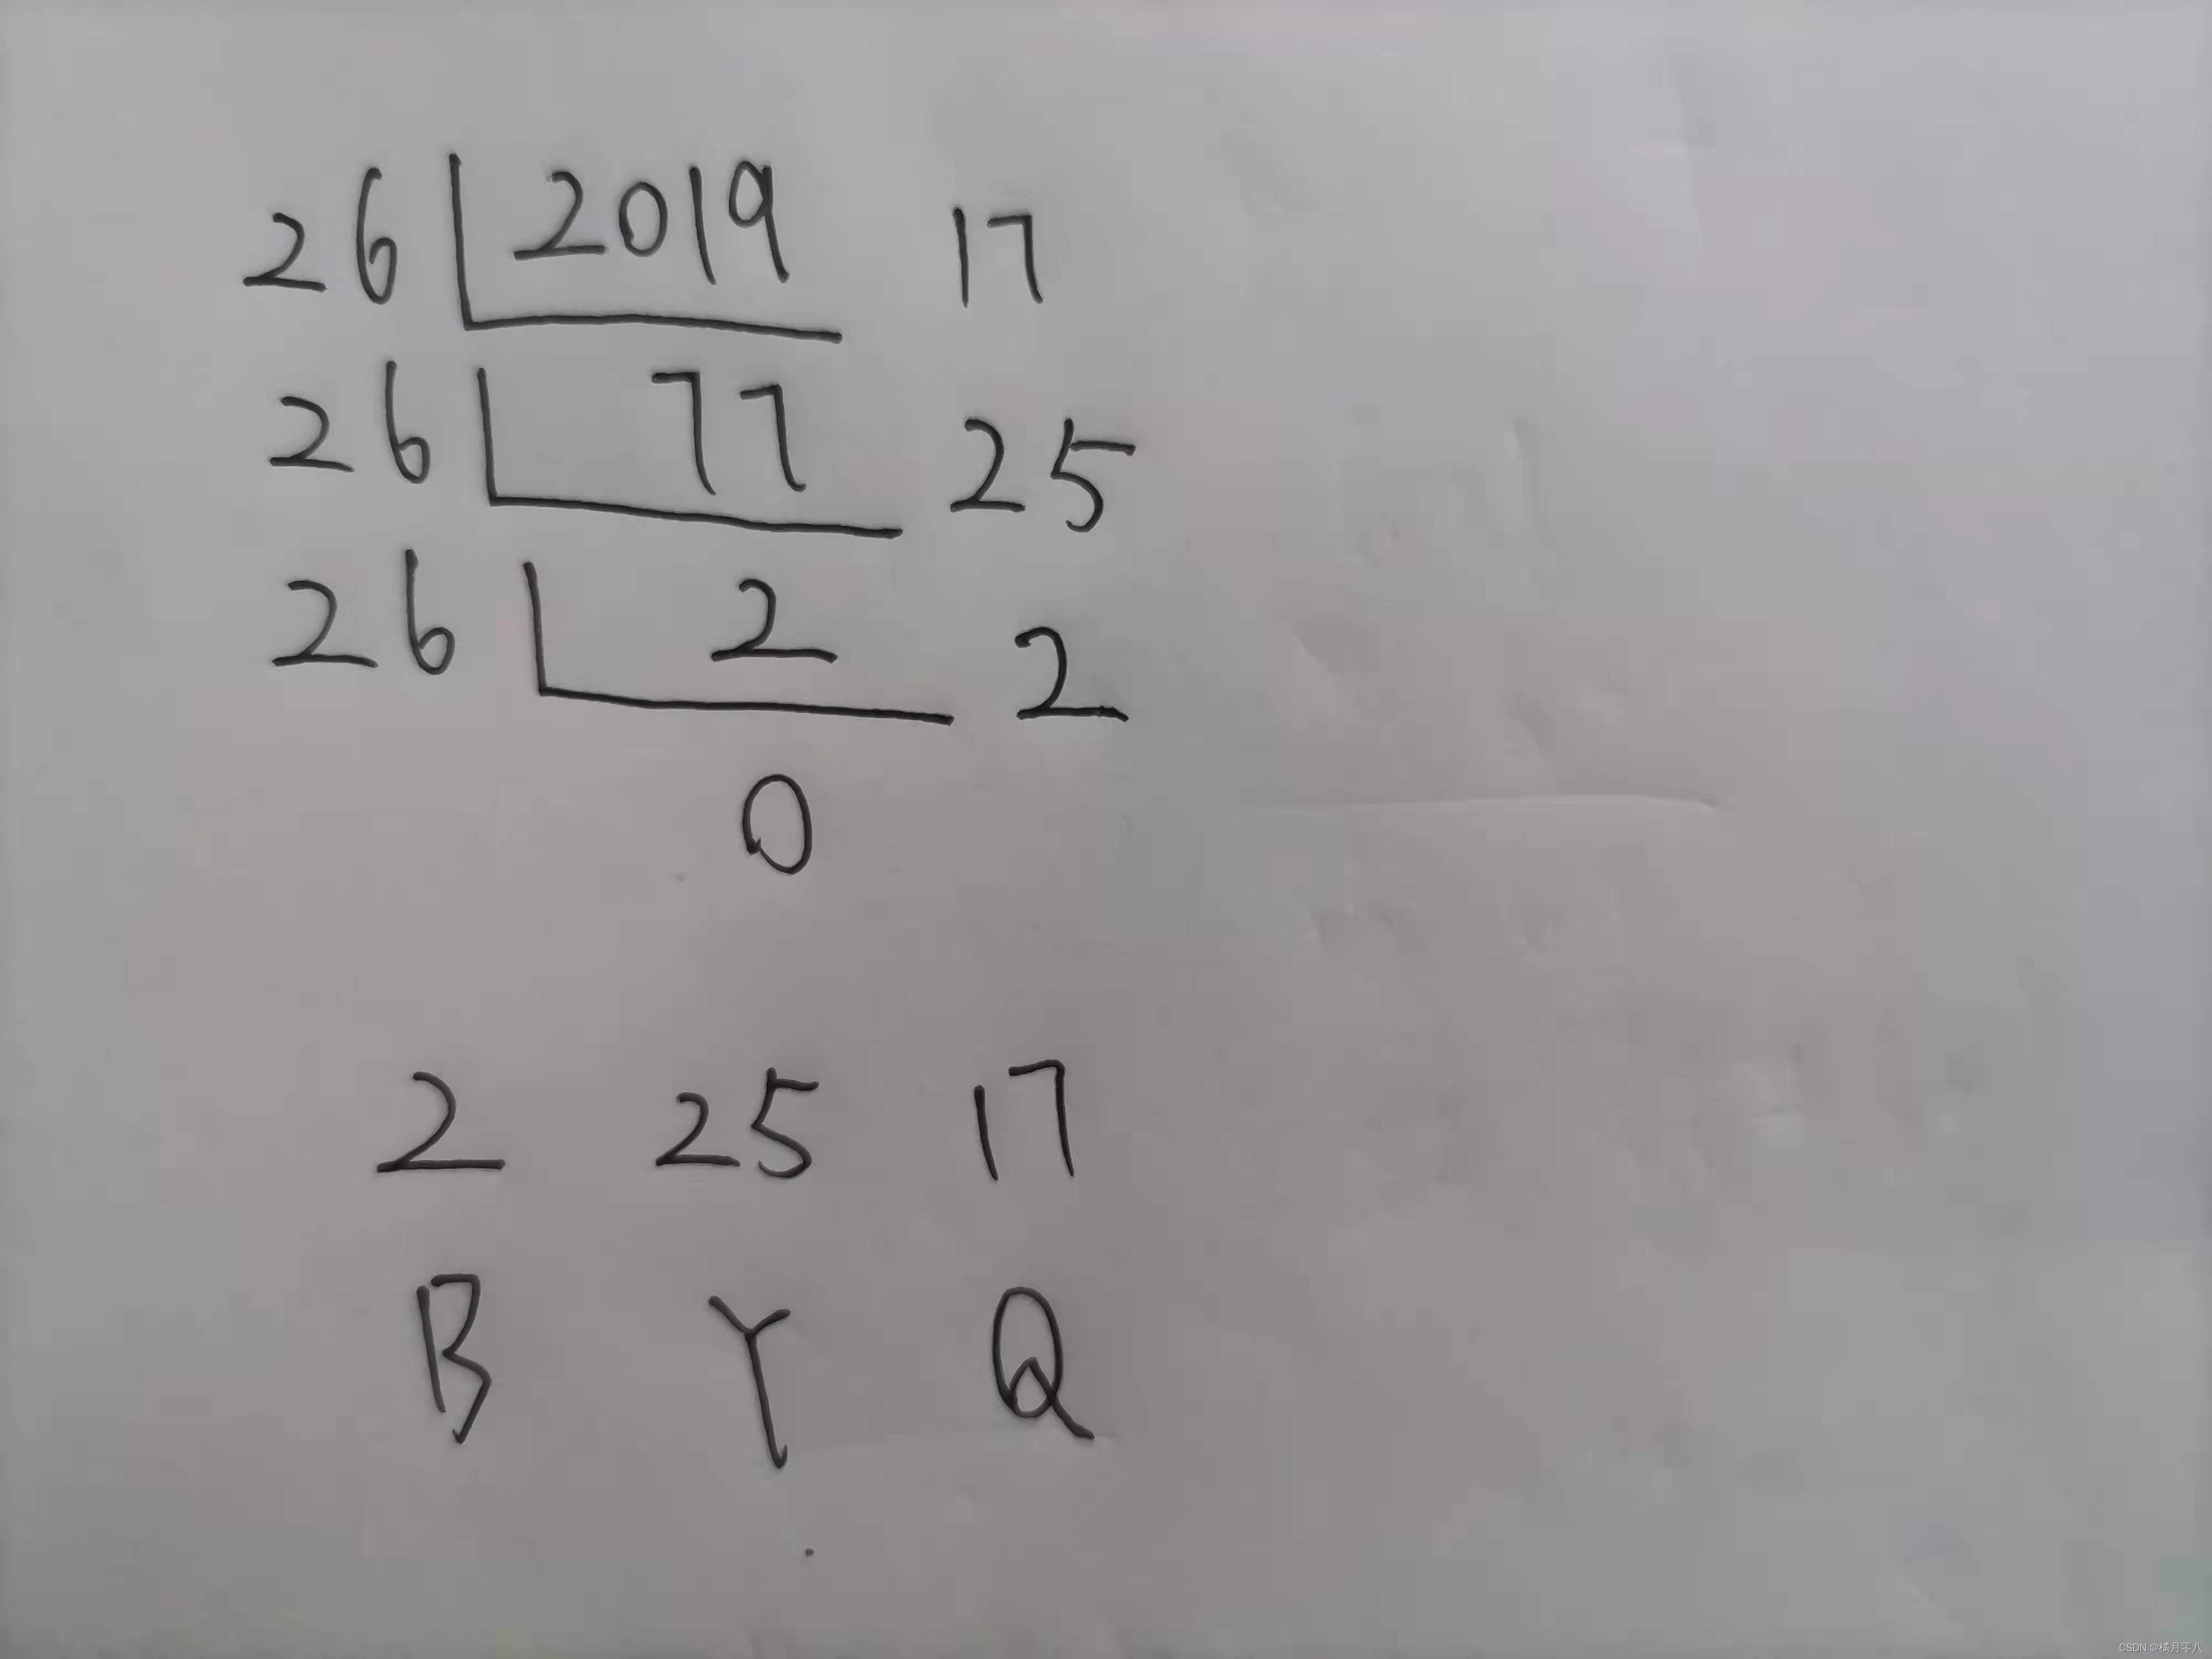 26 2019 17
26 77 25
26 2 2
0
2 25 17
B Y Q
CSDN @橘月零八